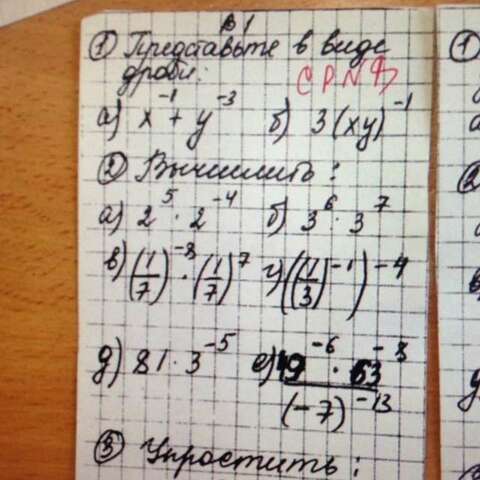 В 1
① Представьте в виде
дроби:
а) x⁻¹ + y⁻³ б) 3(xy)⁻¹
② Вычислить:
а) 2⁵ · 2⁻⁴ б) 3⁶ · 3⁷
в) (1/7)⁻⁸ · (1/7)⁷ г) ((1/3)⁻¹)⁻⁴
д) 81 · 3⁻⁵ е)
(-7)⁻¹³
③ Упростить: